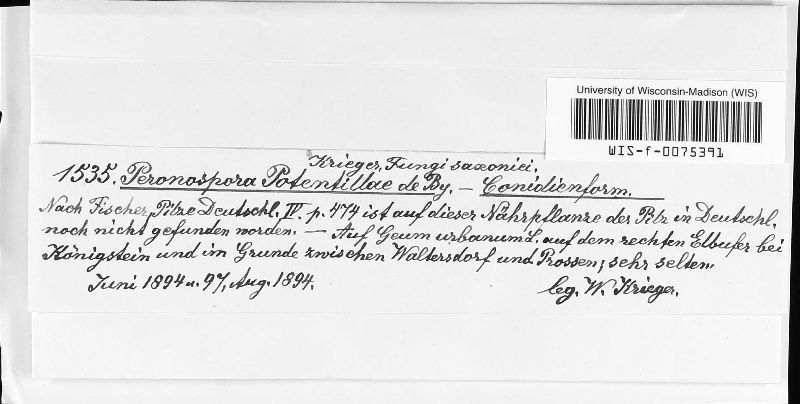 University of Wisconsin-Madison (WIS)
WIS-f-0075391
Krieger, Fungi saxonici.
1535. Peronospora Potentillae de By. — Conidienform.
Nach Fischer, Pilze Deutschl. IV. p. 474 ist auf dieser Nährpflanze der Pilz in Deutschl.
noch nicht gefunden worden. — Auf Geum urbanum L. auf dem rechten Elbufer bei
Königstein und im Grunde zwischen Waltersdorf und Prossen; sehr selten.
Juni 1894 u. 97, Aug. 1894.
leg. W. Krieger.